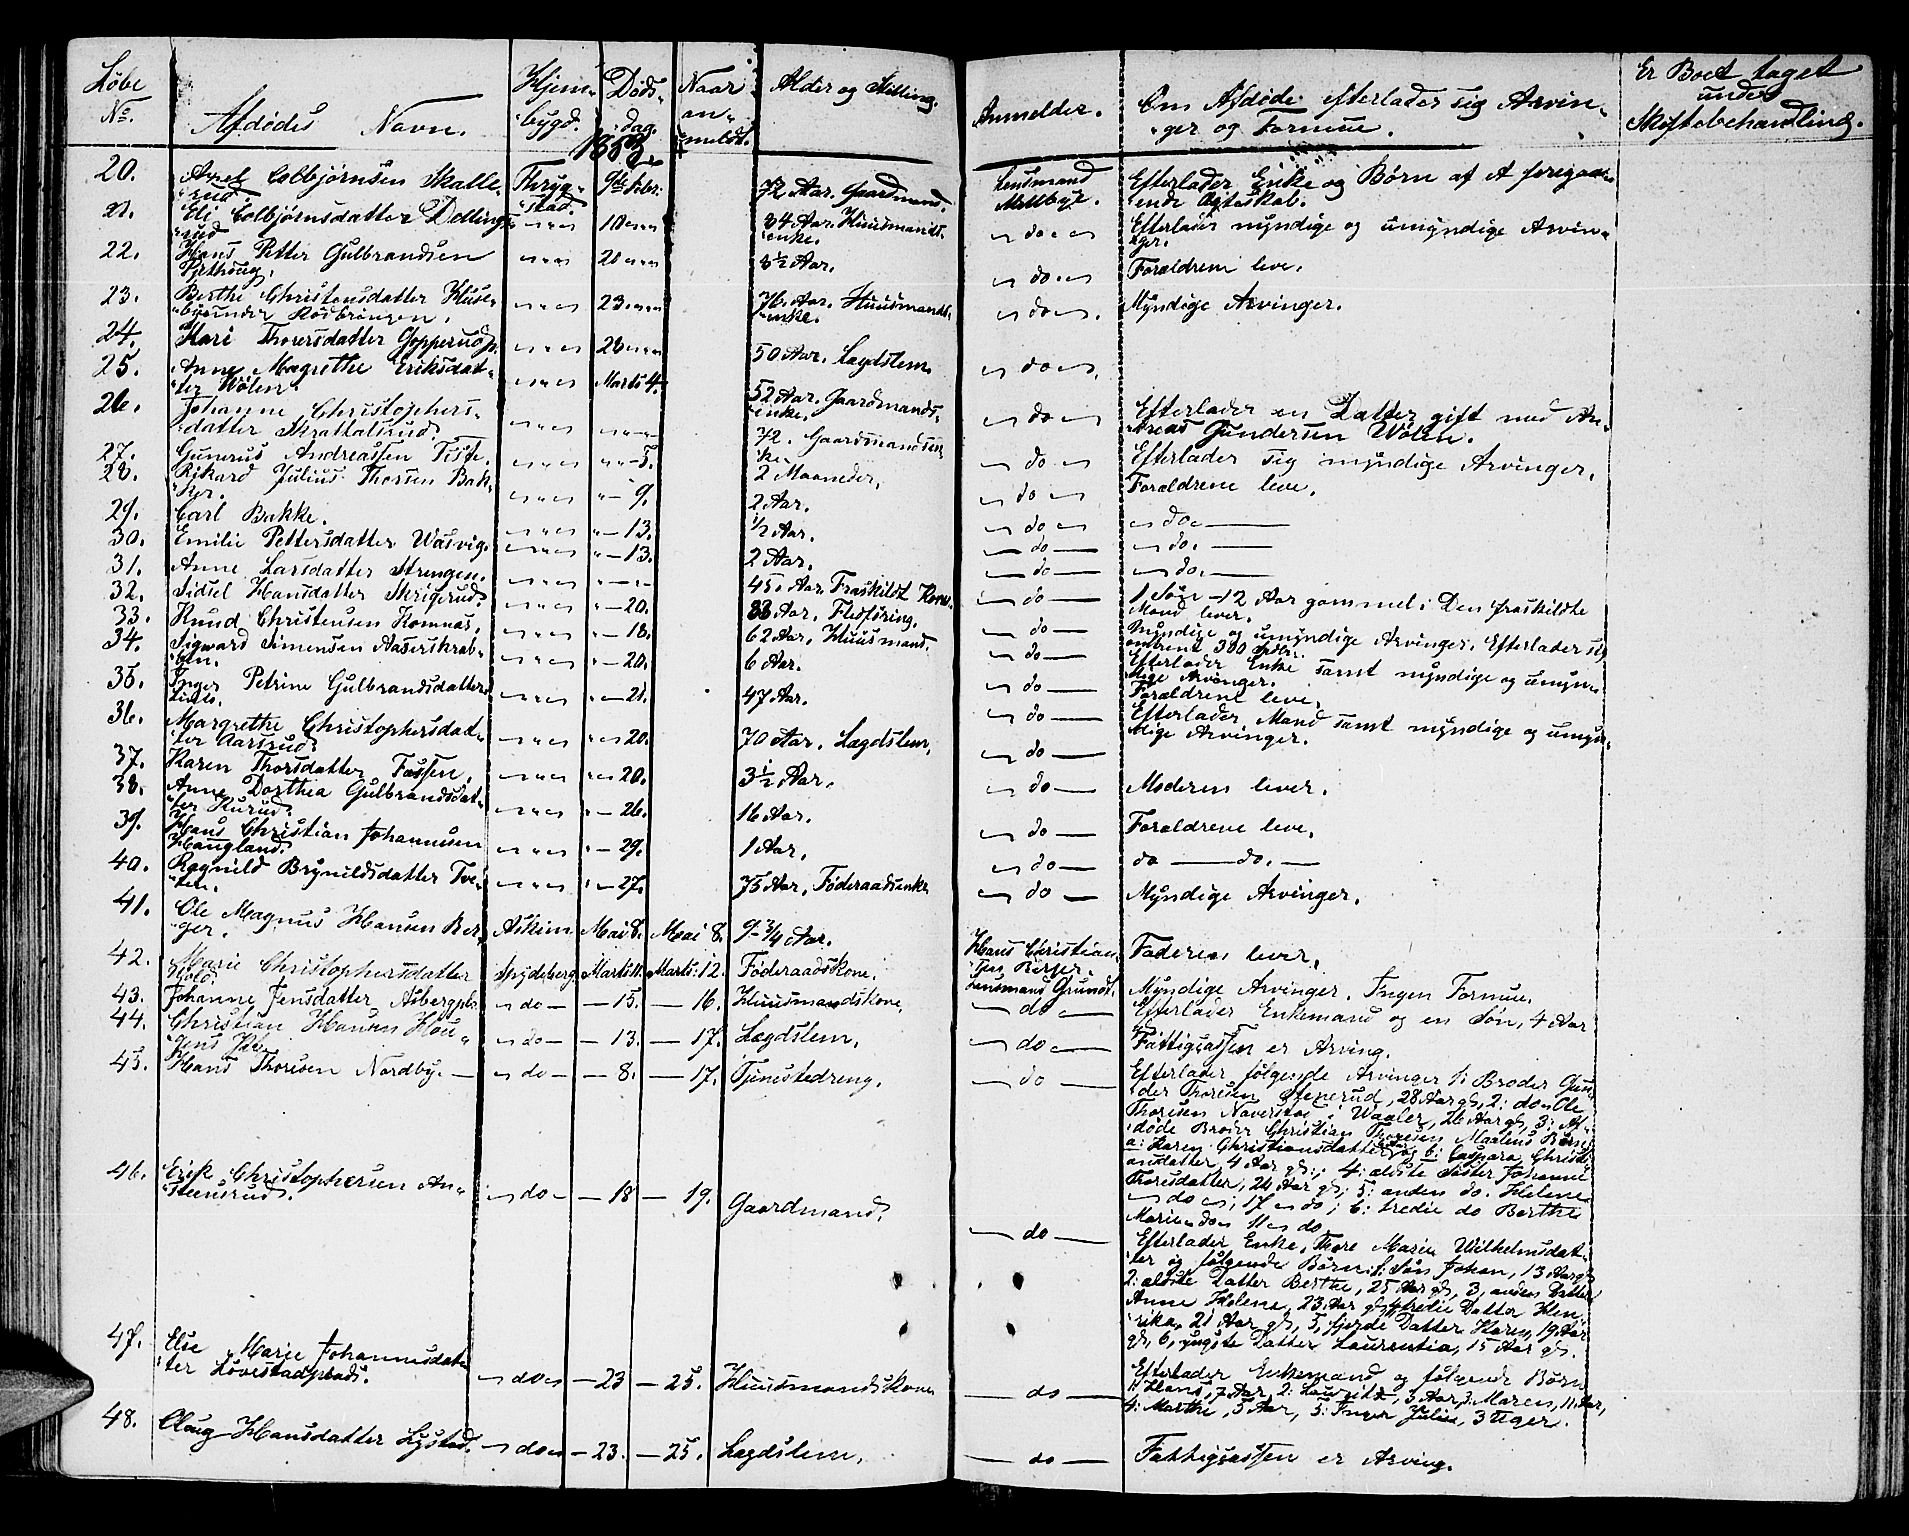 Løbe No. Afdødes Navn. Hjem- bygd. Døds- dag. 1863. Naar an- meldt. Alder og Stilling. Anmelder. Om Afdøde efterlader sig Arvin- ger og Formue. Er Boet taget under Skiftebehandling.
20. Axel Colbjørnsen Skalle- rud Thryg- stad. 9de Febr. 72 Aar. Gaardmand. Lensmand Mellbye. Efterlader Enke og Børn af et foregaa- ende Ægteskab.
21. Eli Colbjørnsdatter Dellings- rud 10 84 Aar. Huusmands- enke. do. Efterlader myndige og umyndige Arvin- ger.
22. Hans Petter Gulbrandsen 20 3½ Aar. do. Forældrene leve.
23. Berthe Christensdatter Huse- 23 76 Aar. Huusmands- enke. do. Myndige Arvinger.
24. Kari Thorersdatter Gopperud 28 50 Aar. Lægdslem do.
25. Anne Magrethe Eriksdat- ter Wølen. Marts 4. 52 Aar. Gaardmands- enke. do Efterlader en Datter gift med An- dreas Gundersen Wølen.
26. Johanne Christophers- datter Skrattalsrud. 72. Gaardmandsen- ke. do Efterlader sig myndige Arvinger.
27. Gunerus Andreassen Tiste. 5. 2 Maaneder. do Forældrene leve.
28. Rikard Julius Thorsen Bak- ker. 9. 2 Aar. do do.
29. Carl Bakke. 13. ½ Aar. do do.
30. Emilie Pettersdatter Wasvig. 13. 2 Aar. do do.
31. Anne Larsdatter Strengen. 45. Aar Fraskildt Kone. do 1 Søn 12 Aar gammel. Den fraskildte Mand lever.
32. Sidsel Hansdatter Skrigerud. 20. 83 Aar. Fledføring. do Myndige og umyndige Arvinger. Efterlader sig omtrent 300 Spdlr.
33. Knud Christensen Komnæs. 18. 62 Aar. Huusmand. do Efterlader Enke samt myndige og umyn- dige Arvinger.
34. Sigward Simensen Aaserskrab- ben. 20. 6 Aar. do Forældrene leve.
35. Inger Petrine Gulbrandsdatter 21. 47 Aar. do Efterlader Mand samt myndige og umyn- dige Arvinger.
36. Margrethe Christophersdat- ter Aarsrud. 20. 70 Aar. Lægdslem. do
37. Karen Thorsdatter Fossen. 20. 3½ Aar. do Moderen lever.
38. Anne Dorthea Gulbrandsdat- ter Kurud. 26. 16 Aar. do Forældrene leve.
39. Hans Christian Johannesen Haugland. 29. 1 Aar. do do do.
40. Ragnild Brynildsdatter Tve- ten. 27. 75 Aar. Føderaadsenke do Myndige Arvinger.
41. Ole Magnus Hansen Ber- ger. Askim Mai 8. Mai 8. 9 3/4 Aar. Hans Christian- sen Berger. Faderen lever.
42. Marie Christophersdatter Spydeberg. Marts 11. Marts 12. Føderaadskone. Lensmand Grundt. Myndige Arvinger. Ingen Formue.
43. Johanne Jensdatter Asbergpls. do 15. 16. Huusmandskone. do Efterlader Enkemand og en Søn, 4 Aar
44. Christian Hansen Hou- gens do 13. 17. Lægdslem. do Fattigcassen er Arving.
45. Hans Thoresen Nordby. do 8. 17. Tjenestedreng. do Efterlader følgende Arvinger 1: Broder Gun-
der Thoresen Stenerud, 28 Aar gl, 2: do Ole
Thoresen Naverstad i Waaler, 26 Aar gl, 3: Af-
døde Broder Christian Thoresen Maalens Børn:
a: Karen Christiansdatter og b: Caspara Christi-
ansdatter, 4 Aar gl; 4: ældste Søster Johanne
Thorsdatter, 24 Aar gl; 5: anden do. Helene
do 17 do; 6: tredie do Berthe
Marie do 11 do
46. Erik Christophersen An- steensrud. do 18 19. Gaardmand. do Efterlader Enke, Thore Marie Wilhelmsdat-
ter og følgende Børn: 1: Søn Johan, 13 Aar gl,
2: ældste Datter Berthe, 25 Aar gl, 3, anden Datter
Anne Helene, 23 Aar gl, 4 tredie Datter Hen-
rika, 21 Aar gl, 5, fjerde Datter Karen, 19 Aar
gl, 6, yngste Datter Laurentia, 15 Aar gl.
47. Else Marie Johannesdat- ter Løvestadplads. do 23 25. Huusmandskone do Efterlader Enkemand og følgende Børn
1: Hans, 7 Aar, 2: Lauritz, 3 Aar, 3: Maren, 11 Aar,
4: Marthe, 5 Aar, 5: Inger Julie, 3 Uger.
48. Olaug Hansdatter Lystad. do 23. 25. Lægdslem. do Fattigcassen er Arving.